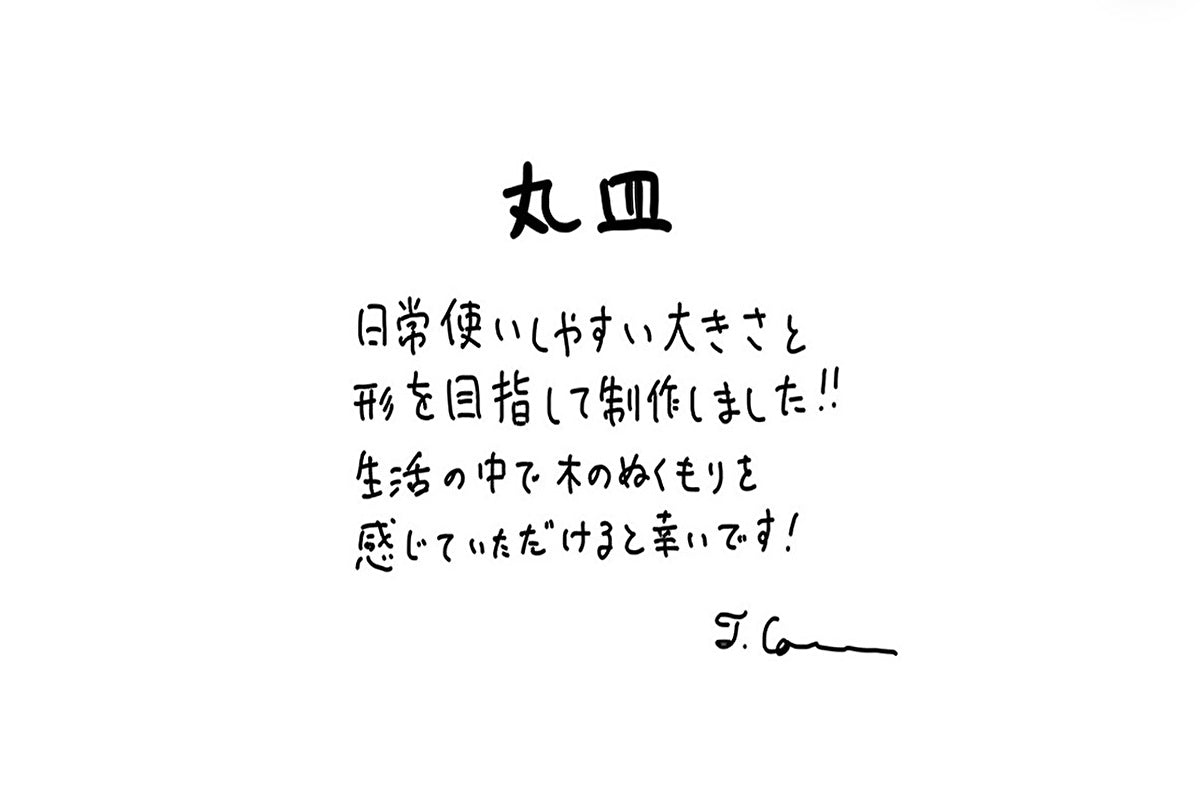 丸皿
日常使いしやすい大きさと
形を目指して制作しました!!
生活の中で木のぬくもりを
感じていただけると幸いです!